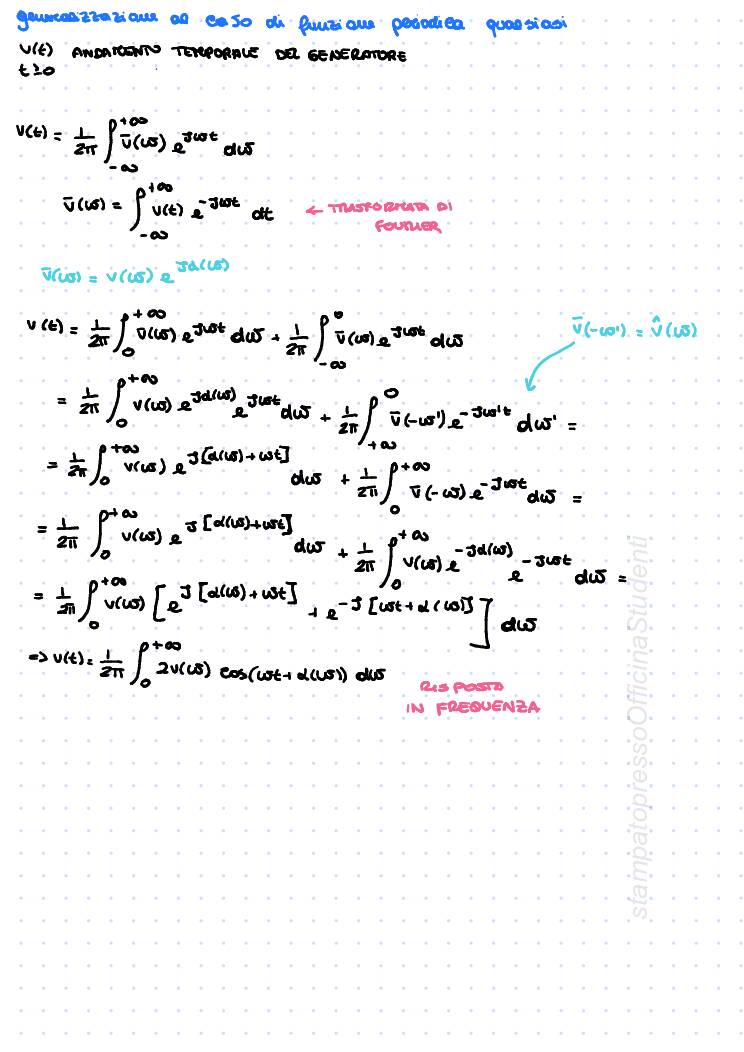 generalizzazione al caso di funzione periodica qualsiasi
v(t) ANDAMENTO TEMPORALE DEL GENERATORE
t≥0
v(t) = 1/2π ∫_{-∞}^{+∞} v̄(ω) e^{jωt} dω
v̄(ω) = ∫_{-∞}^{+∞} v(t) e^{-jωt} dt ← TRASFORMATA DI FOURIER
v̄(ω) = v(ω) e^{jα(ω)}
v(t) = 1/2π ∫_0^{+∞} v̄(ω) e^{jωt} dω + 1/2π ∫_{-∞}^0 v̄(ω) e^{jωt} dω
v̄(-ω') = v̂(ω)
= 1/2π ∫_0^{+∞} v(ω) e^{jα(ω)} e^{jωt} dω + 1/2π ∫_{+∞}^0 v̄(-ω') e^{-jω't} dω' =
= 1/2π ∫_0^{+∞} v(ω) e^{j[α(ω)+ωt]} dω + 1/2π ∫_0^{+∞} v̄(-ω) e^{-jωt} dω =
= 1/2π ∫_0^{+∞} v(ω) e^{j[α(ω)+ωt]} dω + 1/2π ∫_0^{+∞} v(ω) e^{-jα(ω)} e^{-jωt} dω =
= 1/2π ∫_0^{+∞} v(ω) [e^{j[α(ω)+ωt]} + e^{-j[ωt+α(ω)]}] dω
=> v(t) = 1/2π ∫_0^{+∞} 2v(ω) cos(ωt+α(ω)) dω
RISPOSTA
IN FREQUENZA
stampatopressoOfficinaStudenti